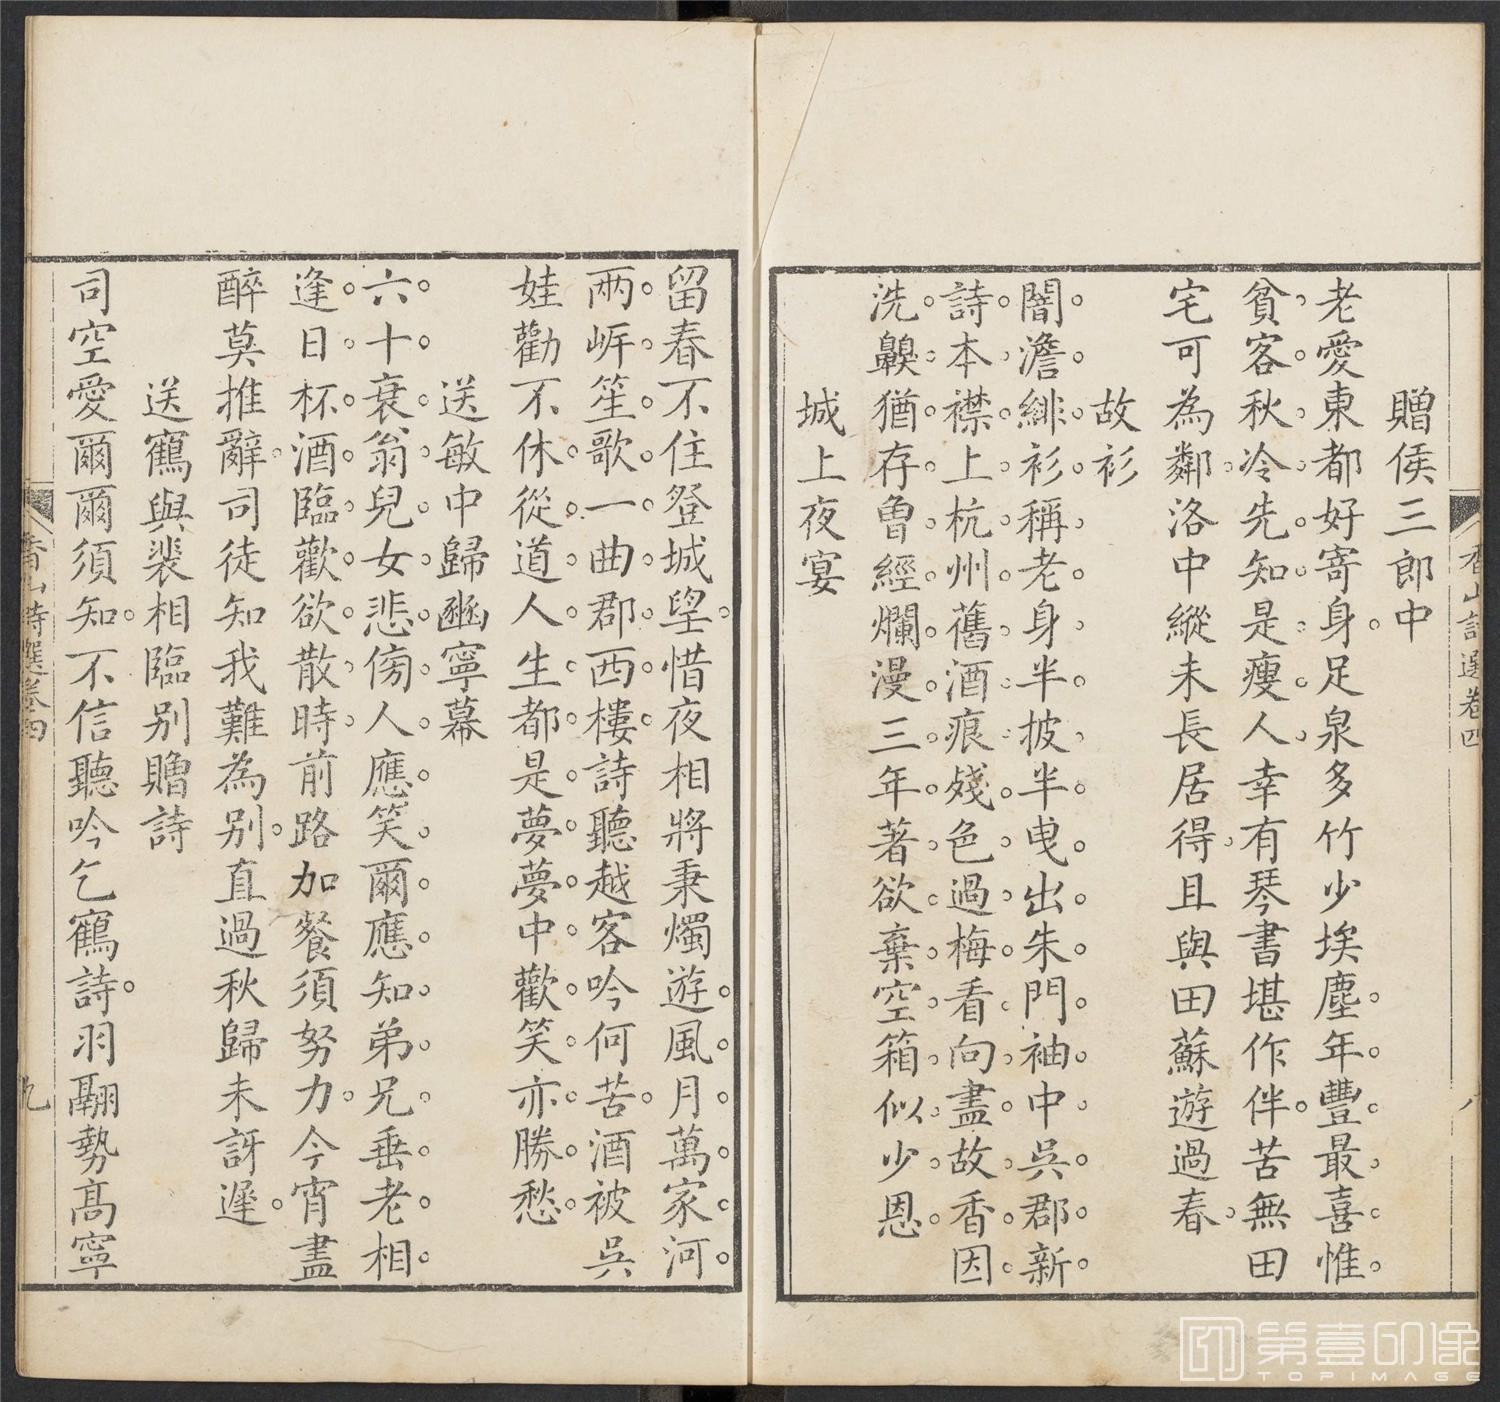 贈侯三郎中
老愛東都好寄身足泉多竹少埃塵年豐最喜惟
貧客秋冷先知是瘦人幸有琴書堪作伴苦無田
宅可為鄰洛中縱未長居得且與田蘇遊過春
故衫
闇澹緋衫稱老身半披半曳出朱門袖中吳郡新
詩本襟上杭州舊酒痕殘色過梅看向盡故香因
洗齅猶存曾經爛漫三年著欲棄空箱似少恩
城上夜宴
香山詩選卷四
八
留春不住登城望惜夜相將秉燭遊風月萬家河
兩㟁笙歌一曲郡西樓詩聽越客吟何苦酒被吳
娃勸不休從道人生都是夢夢中歡笑亦勝愁
送敏中歸豳寧幕
六十衰翁兒女悲傍人應笑爾應知弟兄垂老相
逢日杯酒臨歡欲散時前路加餐須努力今宵盡
醉莫推辭司徒知我難為別直過秋歸未訝遲
送鶴與裴相臨別贈詩
司空愛爾爾須知不信聽吟乞鶴詩羽翮勢高寧
香山詩選卷四
九
第壹印像
TOPIMAGE